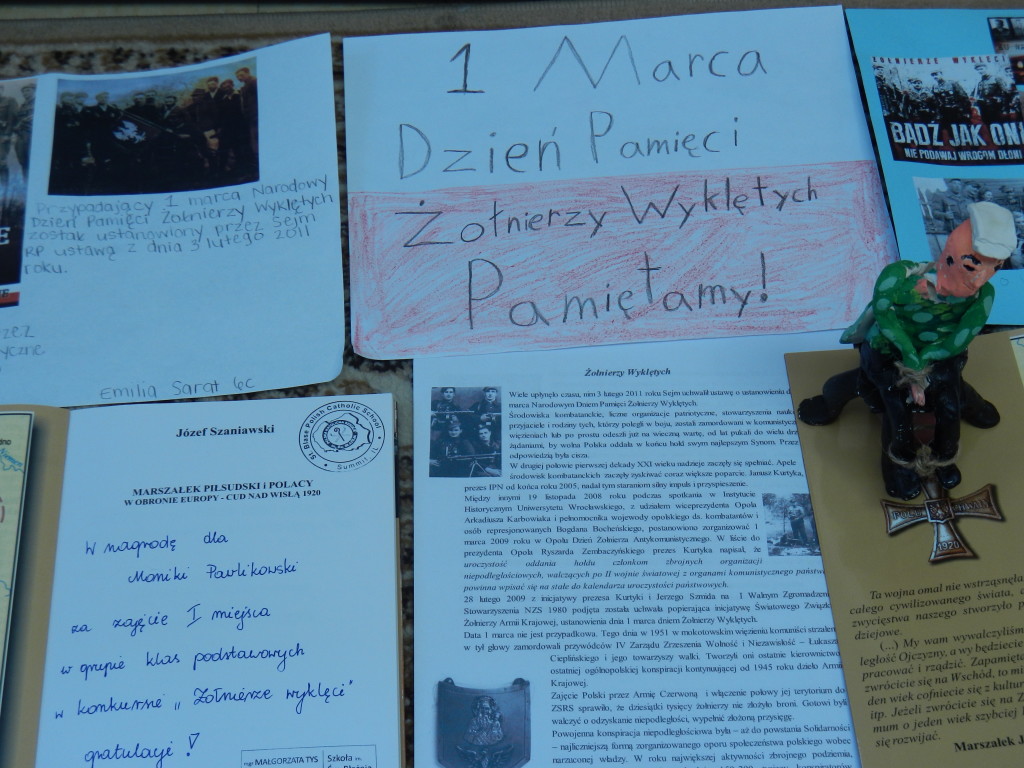 1 Marca
Dzień Pamięci
Żołnierzy Wyklętych
Pamiętamy!
Przypadający 1 marca Narodowy
Dzień Pamięci Żołnierzy Wyklętych
został ustanowiony przez Sejm
RP ustawą z dnia 3 lutego 2011
roku.
Emilia Sarat 6c
ŻOŁNIERZE WYKLĘCI
BĄDŹ JAK ONI
NIE PODAWAJ WROGOM DŁONI
Józef Szaniawski
St. Blase Polish Catholic School
Summit IL
MARSZAŁEK PIŁSUDSKI i POLACY
W OBRONIE EUROPY - CUD NAD WISŁĄ 1920
W nagrodę dla
Moniki Pawlikowski
za zajęcie I miejsca
w grupie klas podstawowych
w konkursie „Żołnierze wyklęci"
gratulacje!
mgr MAŁGORZATA TYS
Szkoła im.
Żołnierzy Wyklętych
Wiele upłynęło czasu, nim 3 lutego 2011 roku Sejm uchwalił ustawę o ustanowieniu
marca Narodowym Dniem Pamięci Żołnierzy Wyklętych.
Środowiska kombatanckie, liczne organizacje patriotyczne, stowarzyszenia
przyjaciele i rodziny tych, którzy polegli w boju, zostali zamordowani w
więzieniach lub po prostu odeszli już na wieczną wartę, od lat pukali do wielu
żądaniami, by wolna Polska oddała w końcu hołd swym najlepszym Synom. Przez
odpowiedzią była cisza.
W drugiej połowie pierwszej dekady XXI wieku nadzieje zaczęły się spełniać. Apele
środowisk kombatanckich zaczęły zyskiwać coraz większe poparcie. Janusz Kurtyka,
prezes IPN od końca roku 2005, nadał tym staraniom silny impuls i przyspieszenie.
Między innymi 19 listopada 2008 roku podczas spotkania w Instytucie
Historycznym Uniwersytetu Wrocławskiego, z udziałem wiceprezydenta Opola
Arkadiusza Karbowiaka i pełnomocnika wojewody opolskiego ds. kombatantów i
osób represjonowanych Bogdana Bocheńskiego, postanowiono zorganizować 1
marca 2009 roku w Opolu Dzień Żołnierza Antykomunistycznego. W liście do
prezydenta Opola Ryszarda Zembaczyńskiego prezes Kurtyka napisał, że
uroczystość oddania hołdu członkom zbrojnych organizacji
niepodległościowych, walczących po II wojnie światowej z organami komunistycznego państwa
powinna wpisać się na stałe do kalendarza uroczystości państwowych.
28 lutego 2009 z inicjatywy prezesa Kurtyki i Jerzego Szmida na I Walnym Zgromadzeniu
Stowarzyszenia NZS 1980 podjęta została uchwała popierająca inicjatywę Światowego Związku
Żołnierzy Armii Krajowej, ustanowienia dnia 1 marca dniem Żołnierzy Wyklętych.
Data 1 marca nie jest przypadkowa. Tego dnia w 1951 w mokotowskim więzieniu komuniści strzałem
w tył głowy zamordowali przywódców IV Zarządu Zrzeszenia Wolność i Niezawisłość – Łukasza
Cieplińskiego i jego towarzyszy walki. Tworzyli oni ostatnie kierownictwo
ostatniej ogólnopolskiej konspiracji kontynuującej od 1945 roku dzieło Armii
Krajowej.
Zajęcie Polski przez Armię Czerwoną i włączenie połowy jej terytorium do
ZSRS sprawiło, że dziesiątki tysięcy żołnierzy nie złożyło broni. Gotowi byli
walczyć o odzyskanie niepodległości, wypełnić złożoną przysięgę.
Powojenna konspiracja niepodległościowa była – aż do powstania Solidarności
– najliczniejszą formą zorganizowanego oporu społeczeństwa polskiego wobec
narzuconej władzy. W roku największej aktywności zbrojnego podziemia,
1920
Ta wojna omal nie wstrząsnęła
całego cywilizowanego świata,
zwycięstwa naszego stworzyło
dziejowe.
(...) My wam wywalczyliśmy
ległość Ojczyzny, a wy będziecie
pracować i rządzić. Zapamiętajcie
zwrócicie się na Wschód, to
den wiek cofniecie się z
itp. Jeżeli zwrócicie się na
mum o jeden wiek szybciej
się rozwijać.
Marszałek J